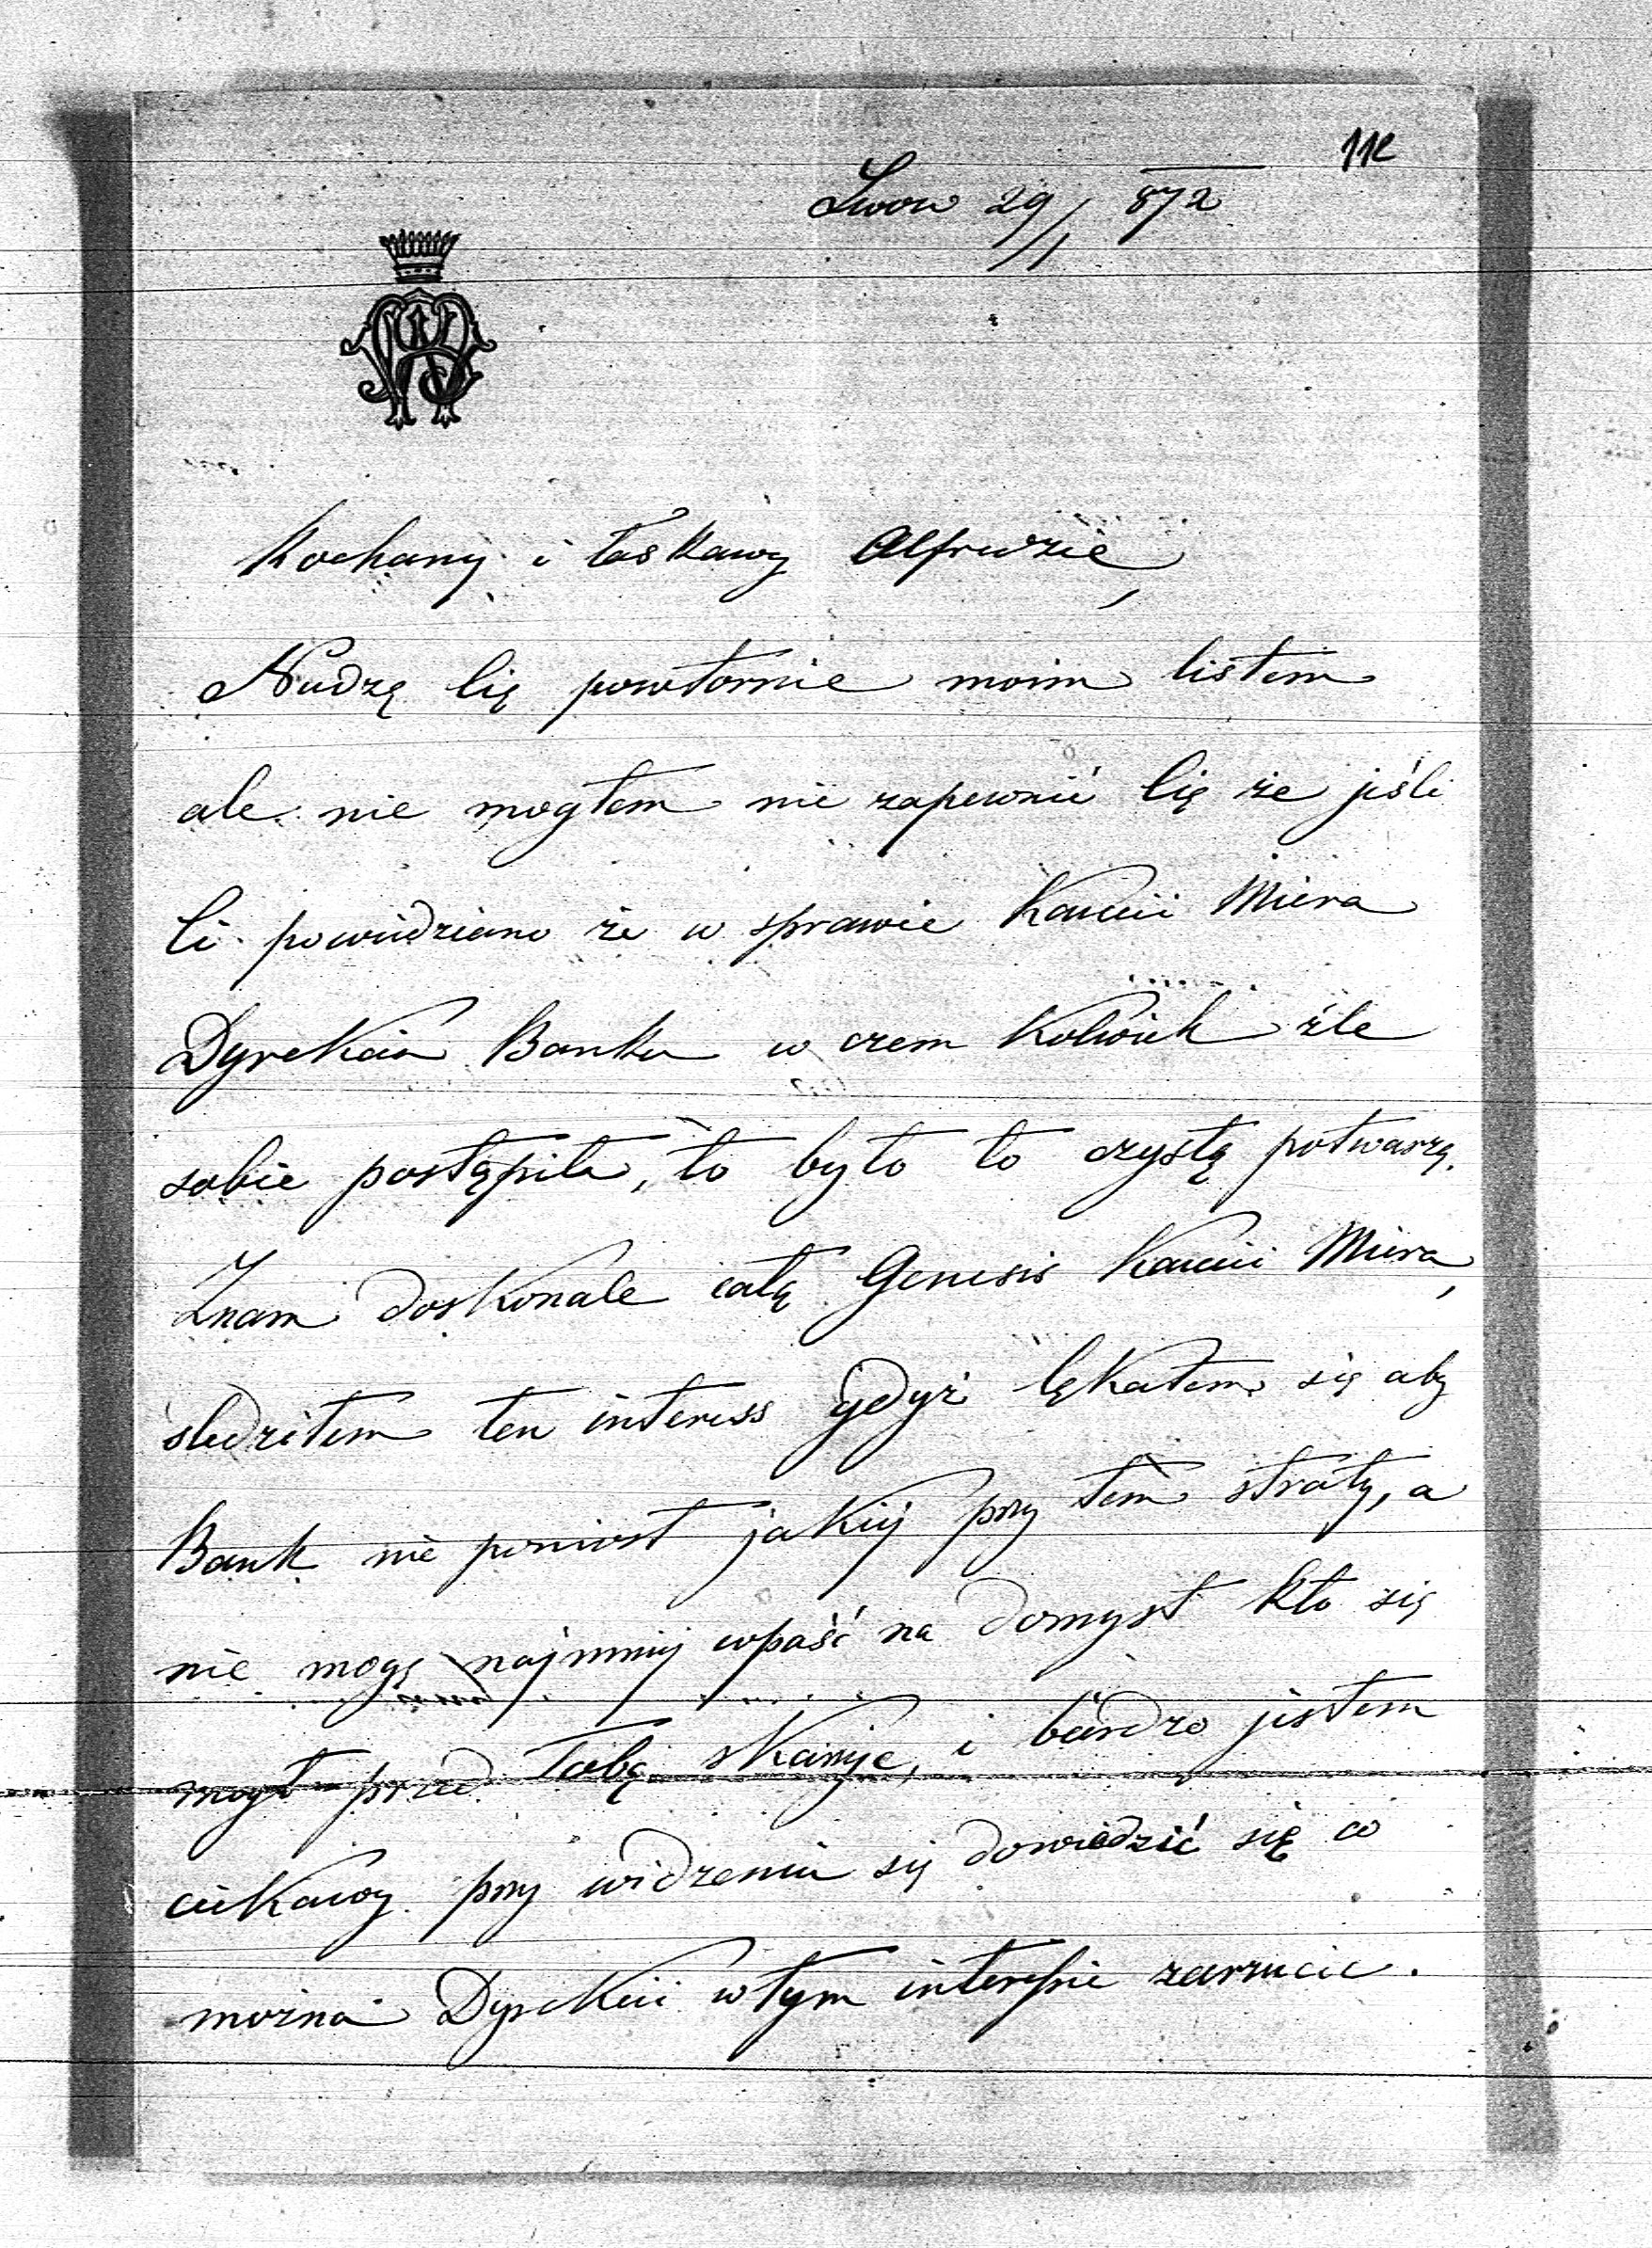 112
Lwow 29/1 872
Kochany i łaskawy Alfredzie,
Nudzę Cię powtornie moim listem
ale nie mogłem nie zapewnić Cię że jeśli
Ci powiedziano że w sprawie Kaucii Miera
Dyrekcia Banku w czem kolwiek źle
sobie postąpiła, to było to czystą potwarzą.
Znam doskonale całą Genesis Kaucii Miera,
śledziłem ten interess gdyż lękałem się aby
Bank nie poniosł jakiej przy tem straty, a
nie mogę najmniej wpaść na domysł kto się
mogł przed Tobą skarzyc, i bardzo jestem
ciekawy przy widzeniu się dowiedzić się co
można Dyrekcii w tym interessie zarzucic.